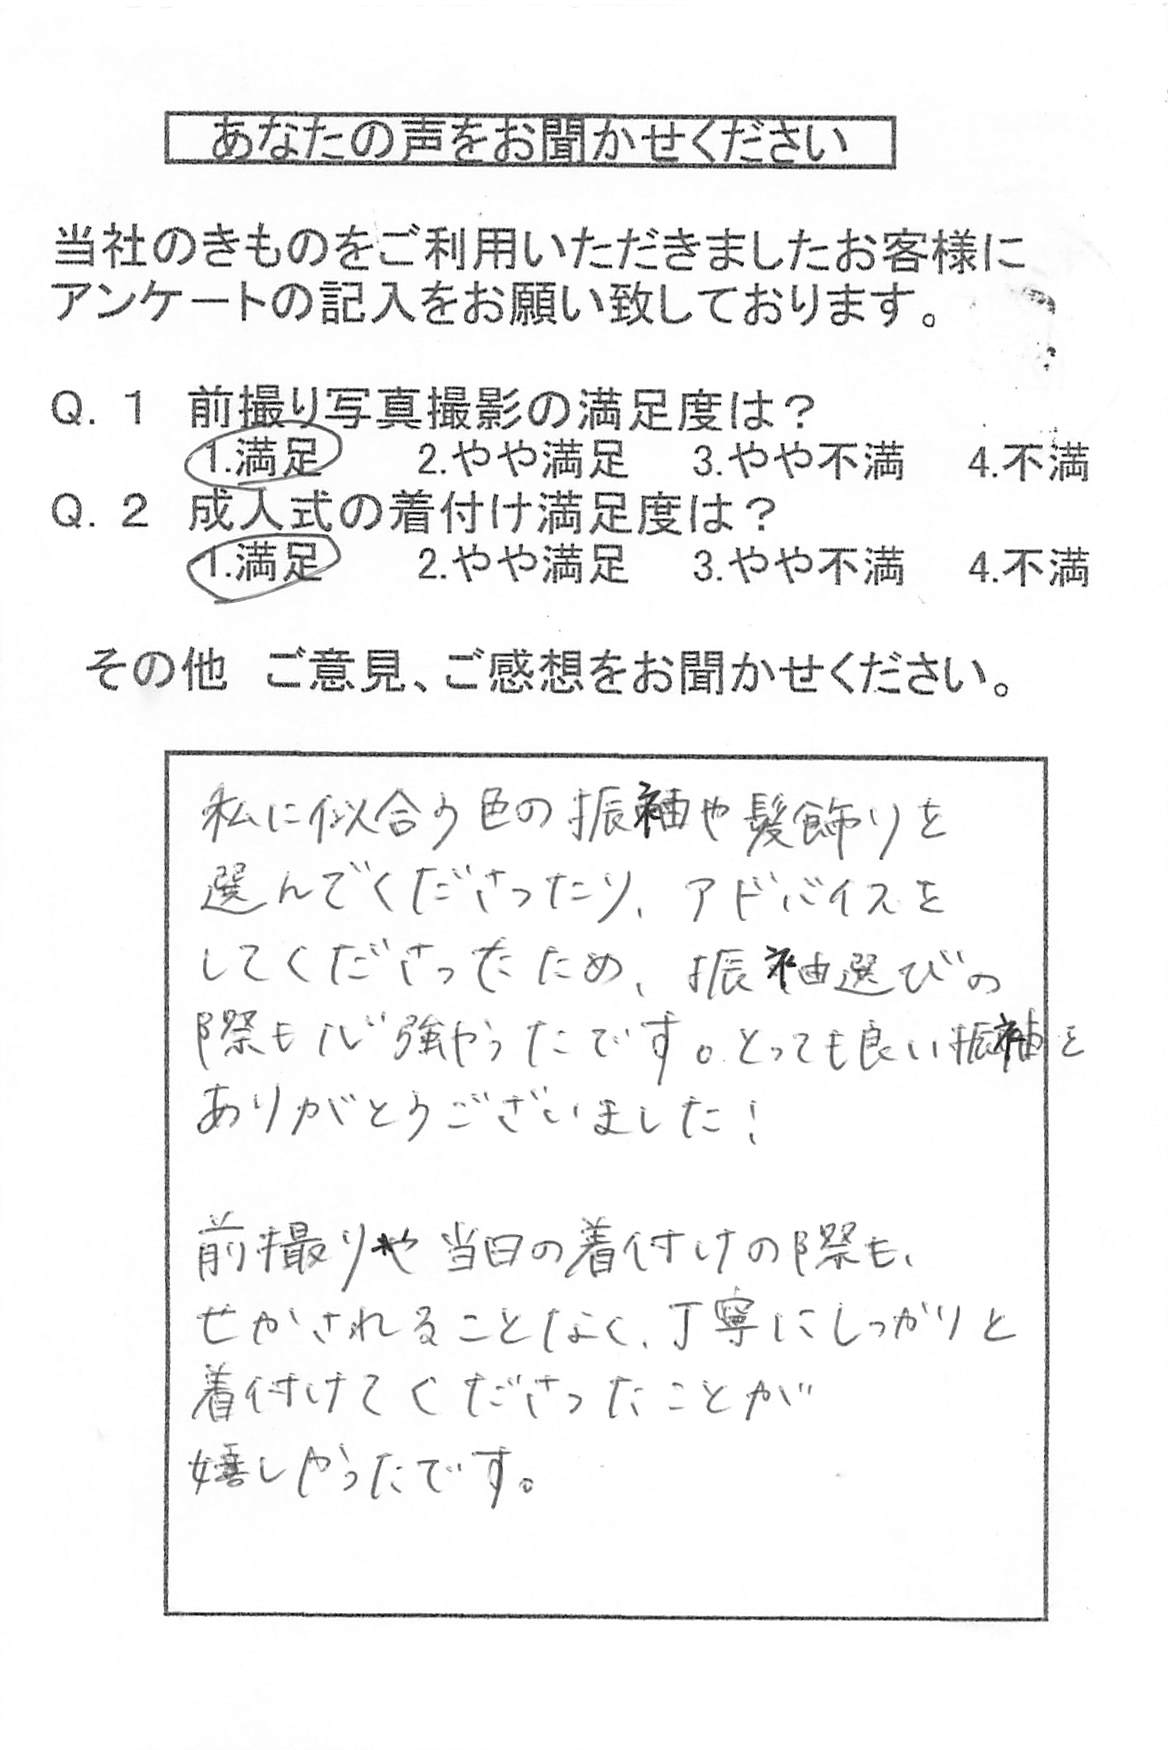 あなたの声をお聞かせください
当社のきものをご利用いただきましたお客様に
アンケートの記入をお願い致しております。
Q. 1 前撮り写真撮影の満足度は？
1.満足 2.やや満足 3.やや不満 4.不満
Q. 2 成人式の着付け満足度は？
1.満足 2.やや満足 3.やや不満 4.不満
その他 ご意見、ご感想をお聞かせください。
私に似合う色の振袖や髪飾りを
選んでくださったり、アドバイスを
してくださったため、振袖選びの
際も心強かったです。とっても良い振袖を
ありがとうございました！
前撮りや当日の着付けの際も、
せかされることなく、丁寧にしっかりと
着付けてくださったことが
嬉しかったです。